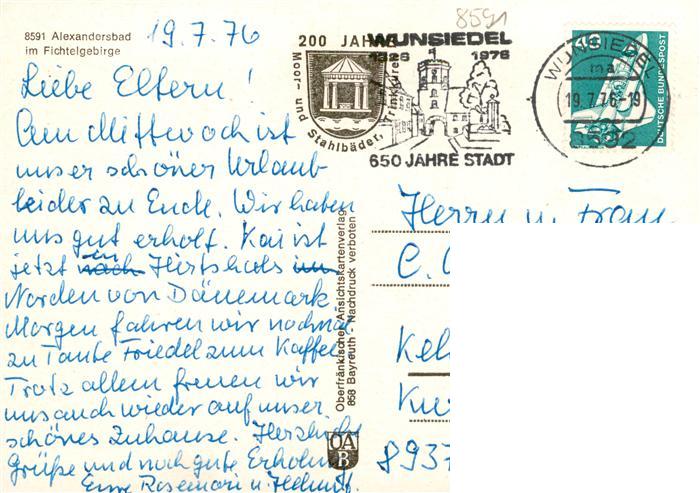 8591 Alexandersbad
im Fichtelgebirge
19.7.76
Liebe Eltern!
Am Mittwoch ist
unser schöner Urlaub
leider zu Ende. Wir haben
uns gut erholt. Kai ist
jetzt nach in Hirtshals im
Norden von Dänemark
Morgen fahren wir nochmal
zu Tante Friedel zum Kaffee
Trotz allem freuen wir
uns auch wieder auf unser
schönes Zuhause. Herzliche
Grüße und noch gute Erholung
Eure Rosemarie u. Helmut.
Oberfränkischer Ansichtskartenverlag
858 Bayreuth - Nachdruck verboten
OA
B
8591
200 JAHRE
Moor- und Stahlbäder, Trinkkuren
WUNSIEDEL
1326 1976
650 JAHRE STADT
WUNSIEDEL
ma
19.7.76-19
8592
DEUTSCHE BUNDESPOST
Herrn u. Frau
C.
Kel
Ku
8937